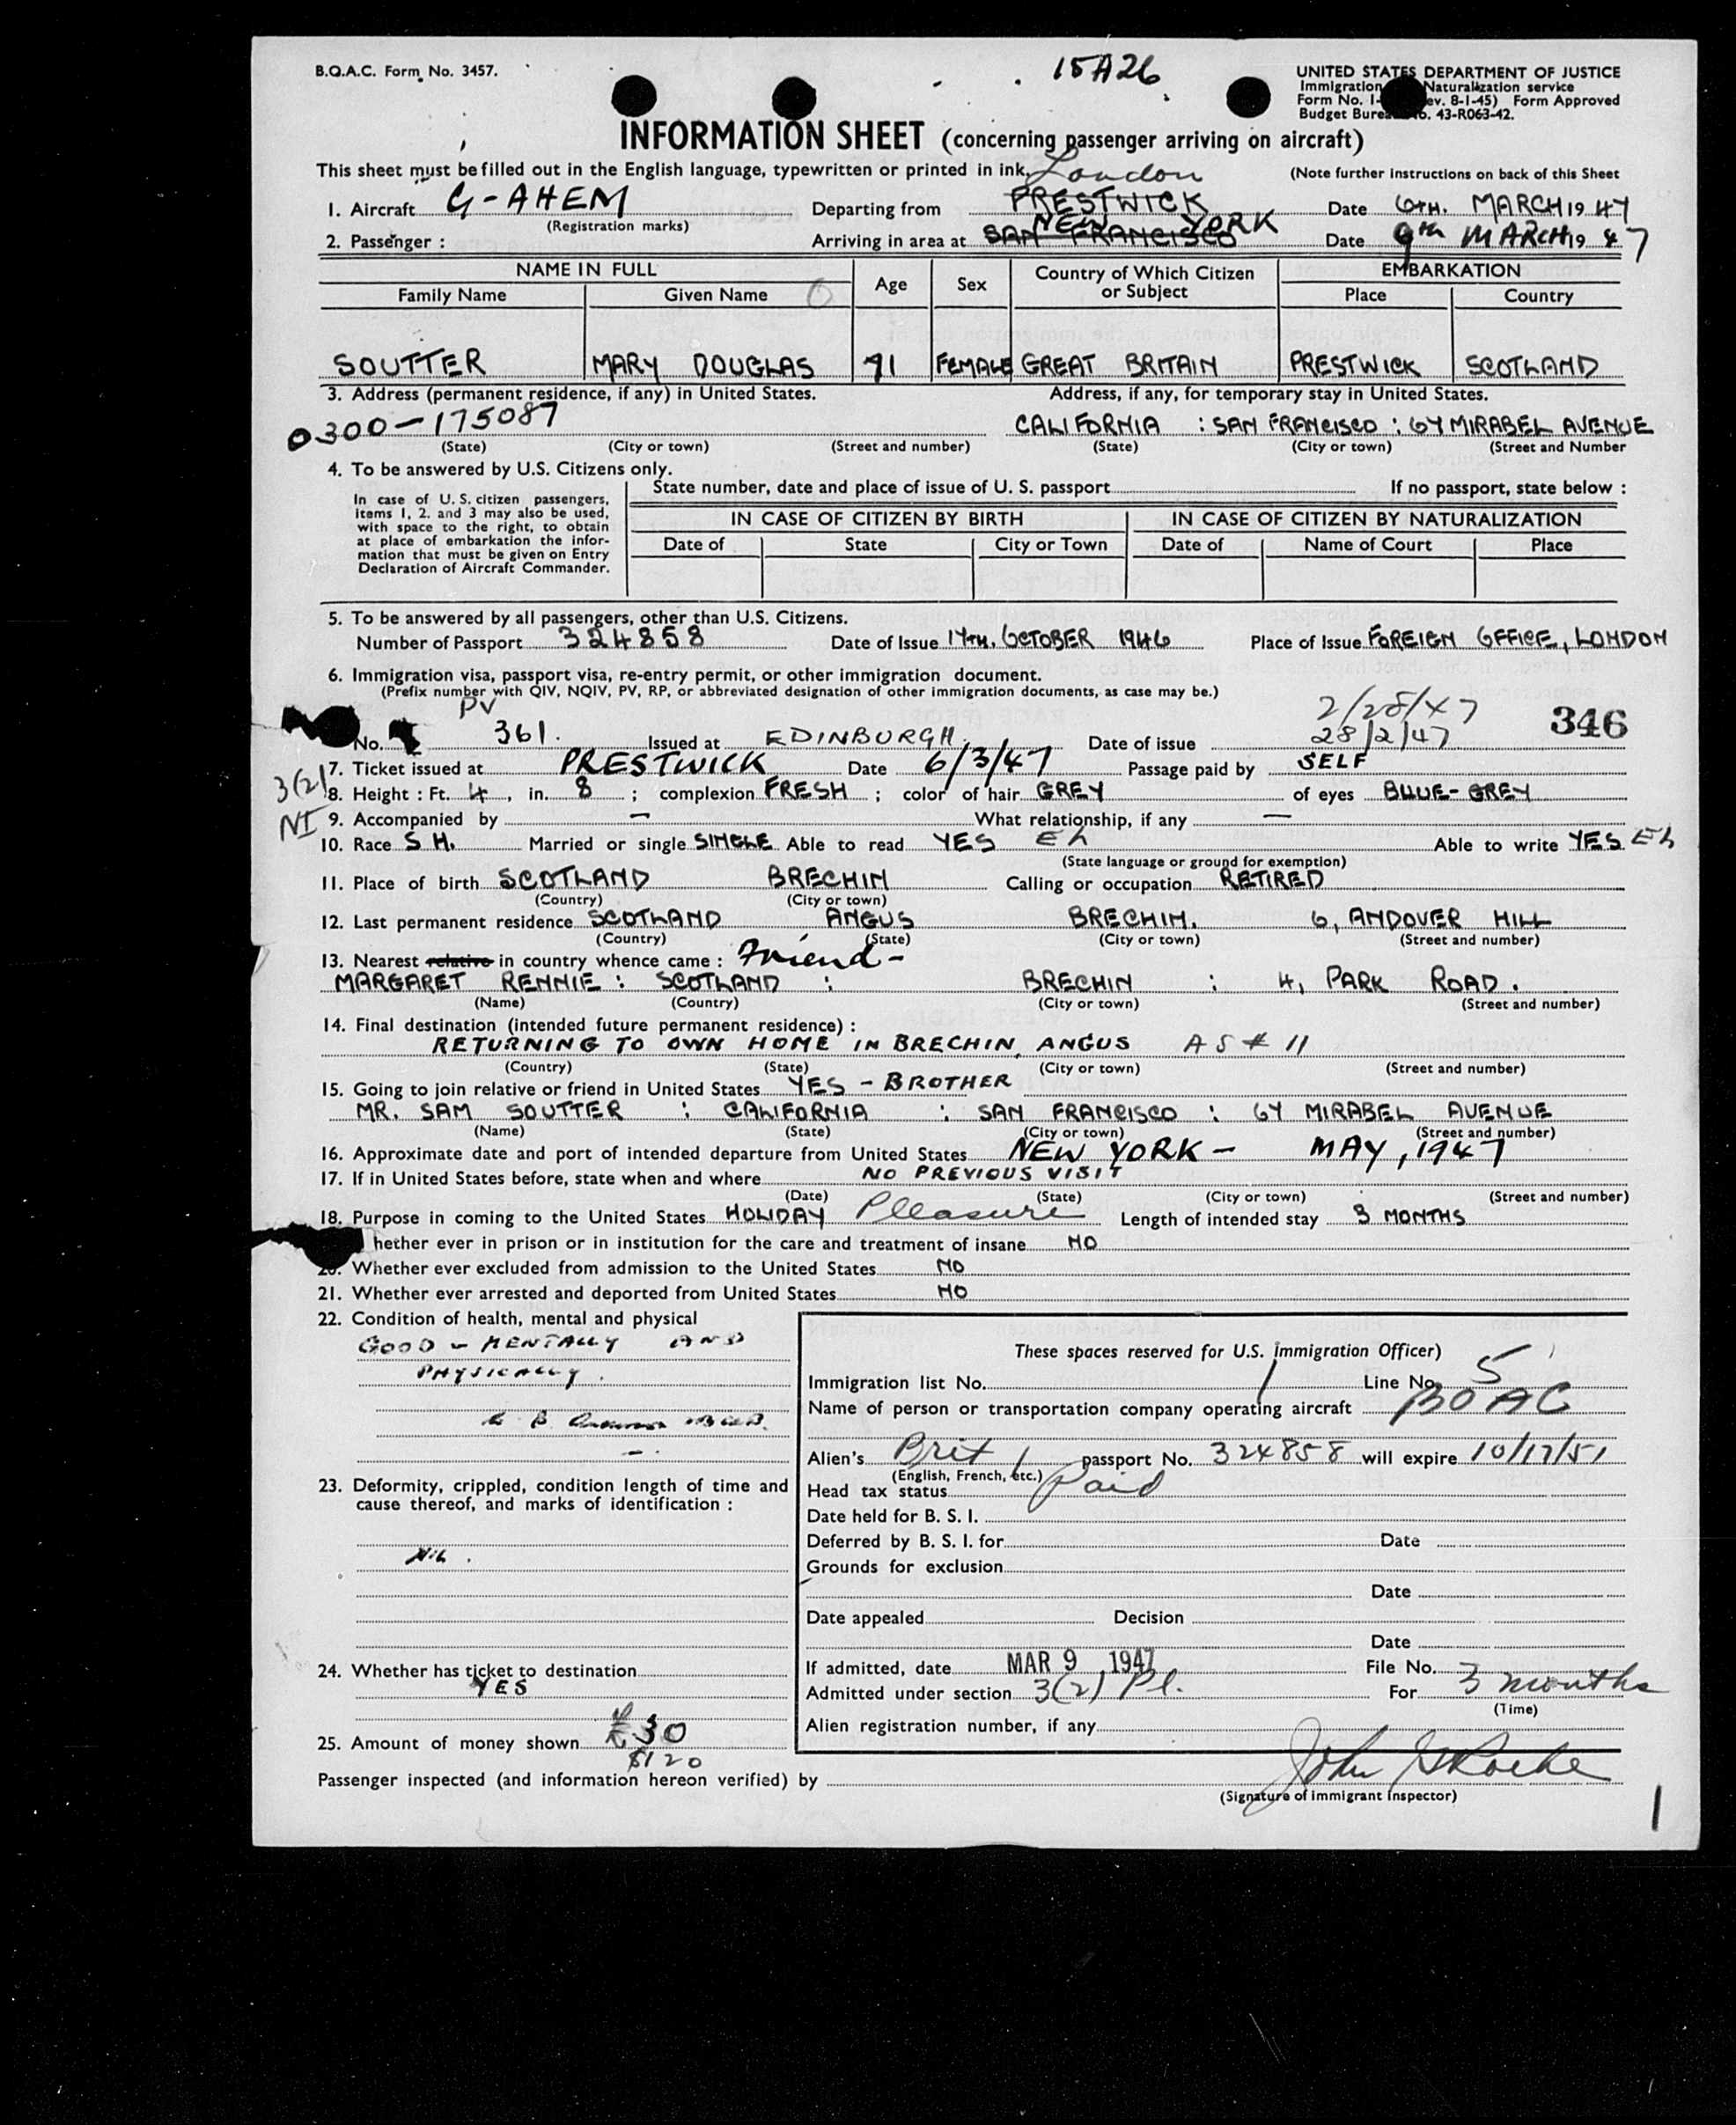 B.O.A.C. Form No. 3457.
15A26
UNITED STATES DEPARTMENT OF JUSTICE
Immigration Naturalization service
Form No. I- ev. 8-1-45) Form Approved
Budget Bure o. 43-R063-42.
INFORMATION SHEET (concerning passenger arriving on aircraft)
This sheet must be filled out in the English language, typewritten or printed in ink.
(Note further instructions on back of this Sheet
London
1. Aircraft G-AHEM Departing from PRESTWICK Date 6TH. MARCH 1947
(Registration marks)
NEW YORK
2. Passenger : Arriving in area at SAN FRANCISCO Date 9th MARCH 1947
NAME IN FULL Age Sex Country of Which Citizen or Subject EMBARKATION
Family Name Given Name Place Country
SOUTTER MARY DOUGLAS 71 FEMALE GREAT BRITAIN PRESTWICK SCOTLAND
3. Address (permanent residence, if any) in United States. Address, if any, for temporary stay in United States.
0300-175087 CALIFORNIA : SAN FRANCISCO : 64 MIRABEL AVENUE
(State) (City or town) (Street and number) (State) (City or town) (Street and Number
4. To be answered by U.S. Citizens only.
In case of U.S. citizen passengers, items 1, 2. and 3 may also be used, with space to the right, to obtain at place of embarkation the information that must be given on Entry Declaration of Aircraft Commander.
State number, date and place of issue of U. S. passport If no passport, state below :
IN CASE OF CITIZEN BY BIRTH IN CASE OF CITIZEN BY NATURALIZATION
Date of State City or Town Date of Name of Court Place
5. To be answered by all passengers, other than U.S. Citizens.
Number of Passport 324858 Date of Issue 17TH. OCTOBER 1946 Place of Issue FOREIGN OFFICE, LONDON
6. Immigration visa, passport visa, re-entry permit, or other immigration document.
(Prefix number with QIV, NQIV, PV, RP, or abbreviated designation of other immigration documents, as case may be.)
PV 2/28/47 346
No. 361. Issued at EDINBURGH. Date of issue 28/2/47
7. Ticket issued at PRESTWICK Date 6/3/47 Passage paid by SELF
3(2)
8. Height : Ft. 4, in. 8 ; complexion FRESH ; color of hair GREY of eyes BLUE-GREY
NI
9. Accompanied by — What relationship, if any —
10. Race S H. Married or single SINGLE Able to read YES Eh Able to write YES Eh
(State language or ground for exemption)
11. Place of birth SCOTLAND BRECHIN Calling or occupation RETIRED
(Country) (City or town)
12. Last permanent residence SCOTLAND ANGUS BRECHIN. 6, ANDOVER HILL
(Country) (State) (City or town) (Street and number)
13. Nearest relative in country whence came : Friend -
MARGARET RENNIE : SCOTLAND : BRECHIN : 4, PARK ROAD.
(Name) (Country) (City or town) (Street and number)
14. Final destination (intended future permanent residence) :
RETURNING TO OWN HOME IN BRECHIN, ANGUS AS # 11
(Country) (State) (City or town) (Street and number)
15. Going to join relative or friend in United States YES - BROTHER
MR. SAM SOUTTER : CALIFORNIA : SAN FRANCISCO : 64 MIRABEL AVENUE
(Name) (State) (City or town) (Street and number)
16. Approximate date and port of intended departure from United States NEW YORK - MAY, 1947
17. If in United States before, state when and where NO PREVIOUS VISIT
(Date) (State) (City or town) (Street and number)
18. Purpose in coming to the United States HOLIDAY Pleasure Length of intended stay 3 MONTHS
hether ever in prison or in institution for the care and treatment of insane NO
20. Whether ever excluded from admission to the United States NO
21. Whether ever arrested and deported from United States NO
22. Condition of health, mental and physical
GOOD - MENTALLY AND
PHYSICALLY.
23. Deformity, crippled, condition length of time and cause thereof, and marks of identification :
NIL.
24. Whether has ticket to destination
YES
25. Amount of money shown £30
$120
These spaces reserved for U.S. Immigration Officer)
Immigration list No. 1 Line No. 5
Name of person or transportation company operating aircraft BOAC
Alien's Brit passport No. 324858 will expire 10/17/51
(English, French, etc.)
Head tax status Paid
Date held for B. S. I.
Deferred by B. S. I. for Date
Grounds for exclusion
Date
Date appealed Decision
Date
If admitted, date MAR 9 1947 File No.
Admitted under section 3(2) Pl. For 3 months
(Time)
Alien registration number, if any
Passenger inspected (and information hereon verified) by
(Signature of immigrant Inspector)
1